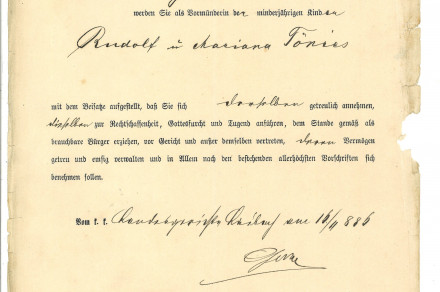 werden Sie als Vormünderin der minderjährigen Kinder
Rudolf u Mariana Tönies
mit dem Beisatze aufgestellt, daß Sie sich derselben getreulich annehmen,
dieselben zur Rechtschaffenheit, Gottesfurcht und Tugend anführen, dem Stande gemäß als
brauchbare Bürger erziehen, vor Gericht und außer demselben vertreten, deren Vermögen
getreu und emsig verwalten und in Allem nach den bestehenden allerhöchsten Vorschriften sich
benehmen sollen.
Vom k. k. Landesgerichte Laibach am 16/4 886